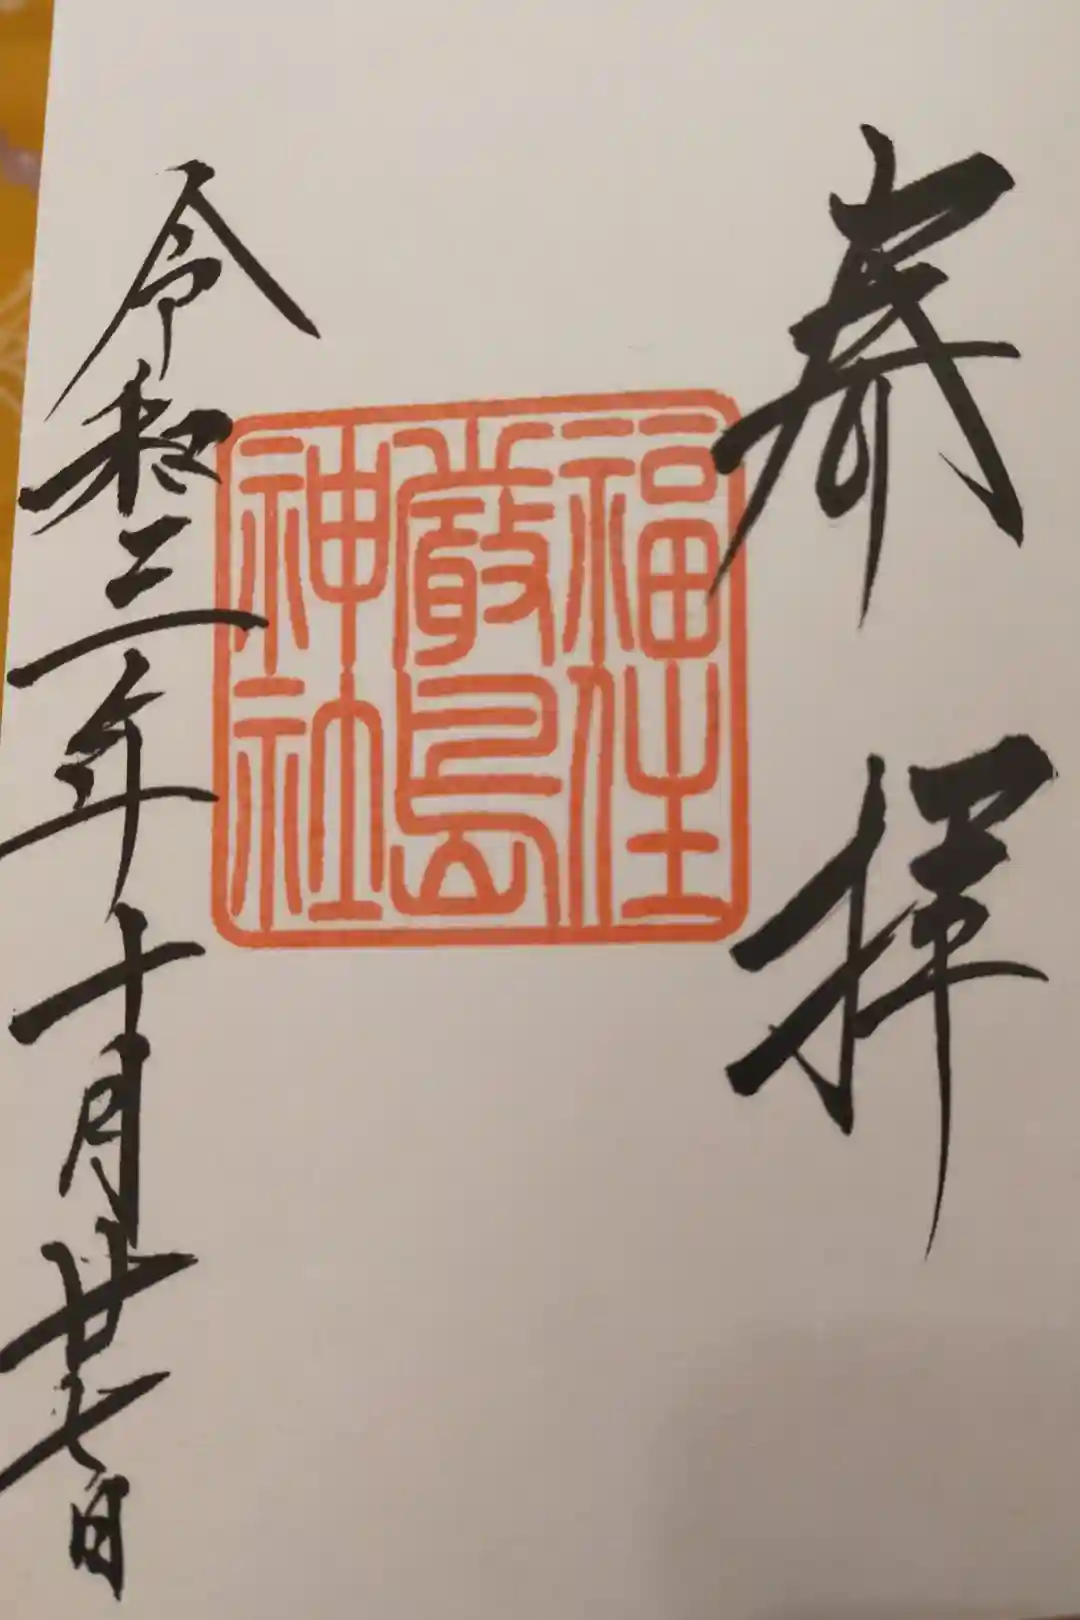 奉拝
福住
厳島
神社
令和三年十月廿七日